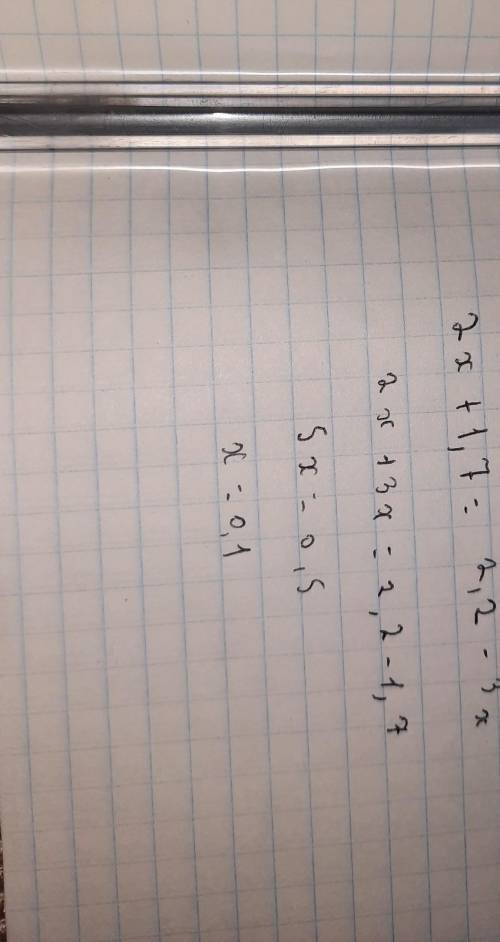 2x+1,7= 2,2-3x
2x+3x=2,2-1,7
5x=0,5
x=0,1